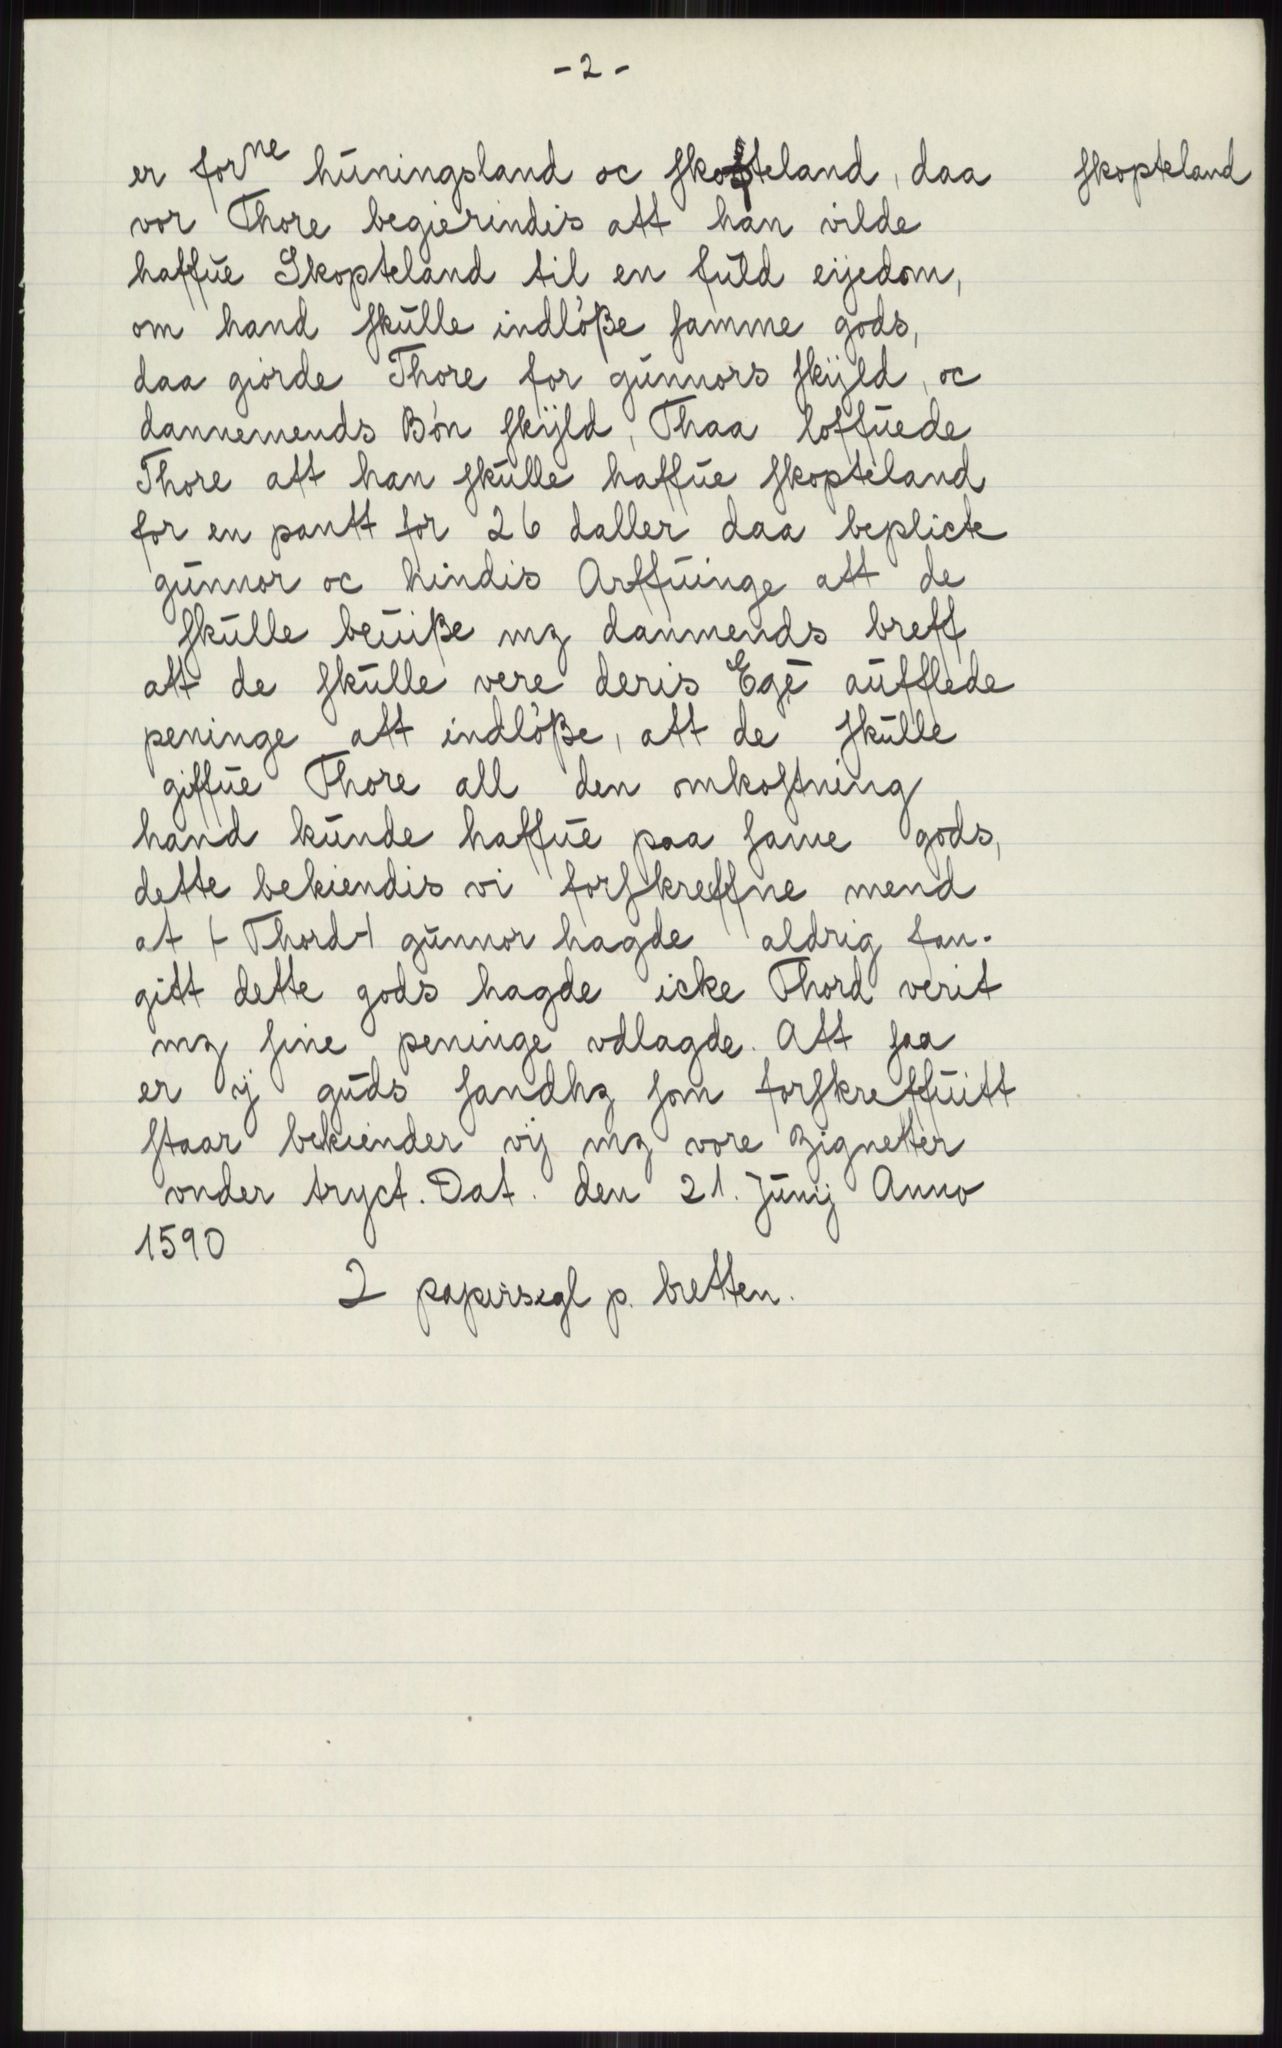 - 2 -
er forne hŭningsland oc skopteland, daa skopteland
vor Thore begierindis att han vilde
haffŭe Skopteland til en fŭld eijedom,
om hand skŭlle indlöße samme gods,
daa giorde Thore for gŭnnors skÿld, oc
dannemends Bön skÿld, Thaa loffŭede
Thore att han skŭlle haffŭe skopteland
for en pantt for 26 daller daa beplicte
gŭnnor oc hindis Arffŭinge att de
skŭlle beŭiße mz danmends breff
att de skŭlle vere deris Egē aŭfflede
peninge att indlöße, att de skŭlle
giffŭe Thore all den omkostning
hand kŭnde haffŭe paa same gods,
dette bekiendis vi forskreffne mend
at (-Thord-) gŭnnor hagde aldrig fan-
gitt dette gods hagde icke Thord verit
mz sine peninge vdlagde. Att saa
er ij gŭds sandhz som forskreffŭitt
staar bekiender vij mz vore zignetter
vnder tryct. Dat. den 21. Jŭnij Anno
1590
2 papirsegl p. bretten.